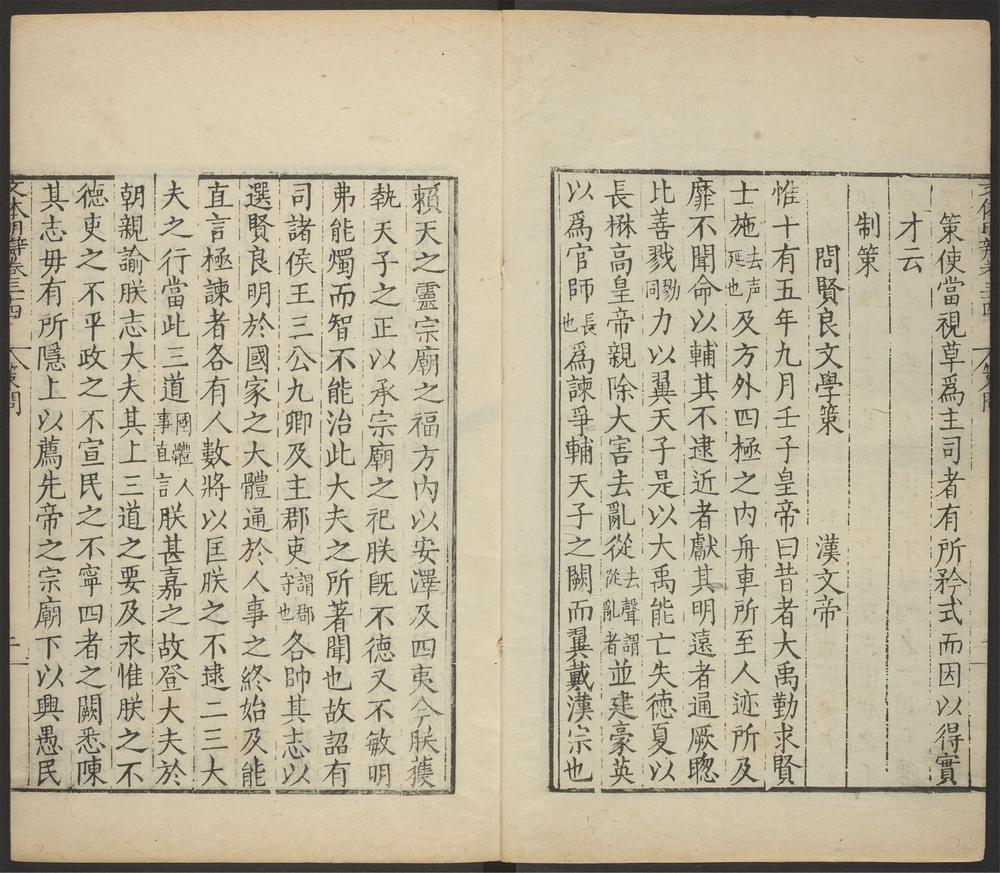 策使當視草爲主司者有所矜式而因以得實
才云
制策
問賢良文學策 漢文帝
惟十有五年九月壬子皇帝曰昔者大禹勤求賢
士施去声延也及方外四極之内舟車所至人迹所及
靡不聞命以輔其不逮近者獻其明遠者通厥聦
比善戮勠同力以翼天子是以大禹能亡失徳夏以
長楙高皇帝親除大害去亂從去聲謂從亂者並建豪英
以爲官師長也爲諫爭輔天子之闕而翼戴漢宗也
賴天之靈宗廟之福方内以安澤及四夷今朕獲
執天子之正以承宗廟之祀朕旣不德又不敏明
弗能燭而智不能治此大夫之所著聞也故詔有
司諸侯王三公九卿及主郡吏謂郡守也各帥其志以
選賢良明於國家之大體通於人事之終始及能
直言極諫者各有人數將以匡朕之不逮二三大
夫之行當此三道國體人事直言朕甚嘉之故登大夫於
朝親諭朕志大夫其上三道之要及永惟朕之不
徳吏之不平政之不宣民之不寧四者之闕悉陳
其志毋有所隱上以薦先帝之宗廟下以興愚民